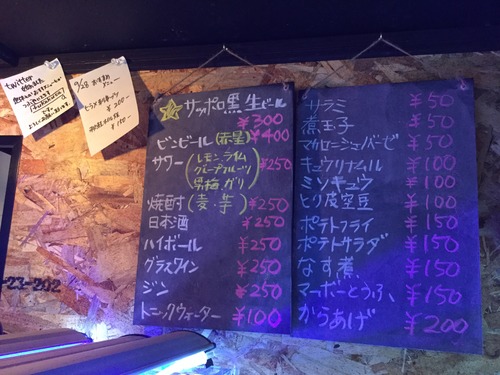 twitter
9/28 おすすめ
メニュー
¥200-
¥150-
サッポロ黒生ビール
¥300
ビンビール(赤星) ¥400
サワー(レモン、ライム
グレープフルーツ
男梅、ガリ) ¥250
焼酎(麦・芋) ¥250
日本酒 ¥250
ハイボール ¥250
グラスワイン ¥250
ジン ¥250
トニックウォーター ¥100
サラミ ¥50
煮玉子 ¥50
マカロニシュノバーゼ ¥50
キュウリナムル ¥100
ミソキュウ ¥100
とり皮空豆 ¥100
ポテトフライ ¥150
ポテトサラダ ¥150
なす煮 ¥150
マーボーとうふ ¥150
からあげ ¥200
-23-202